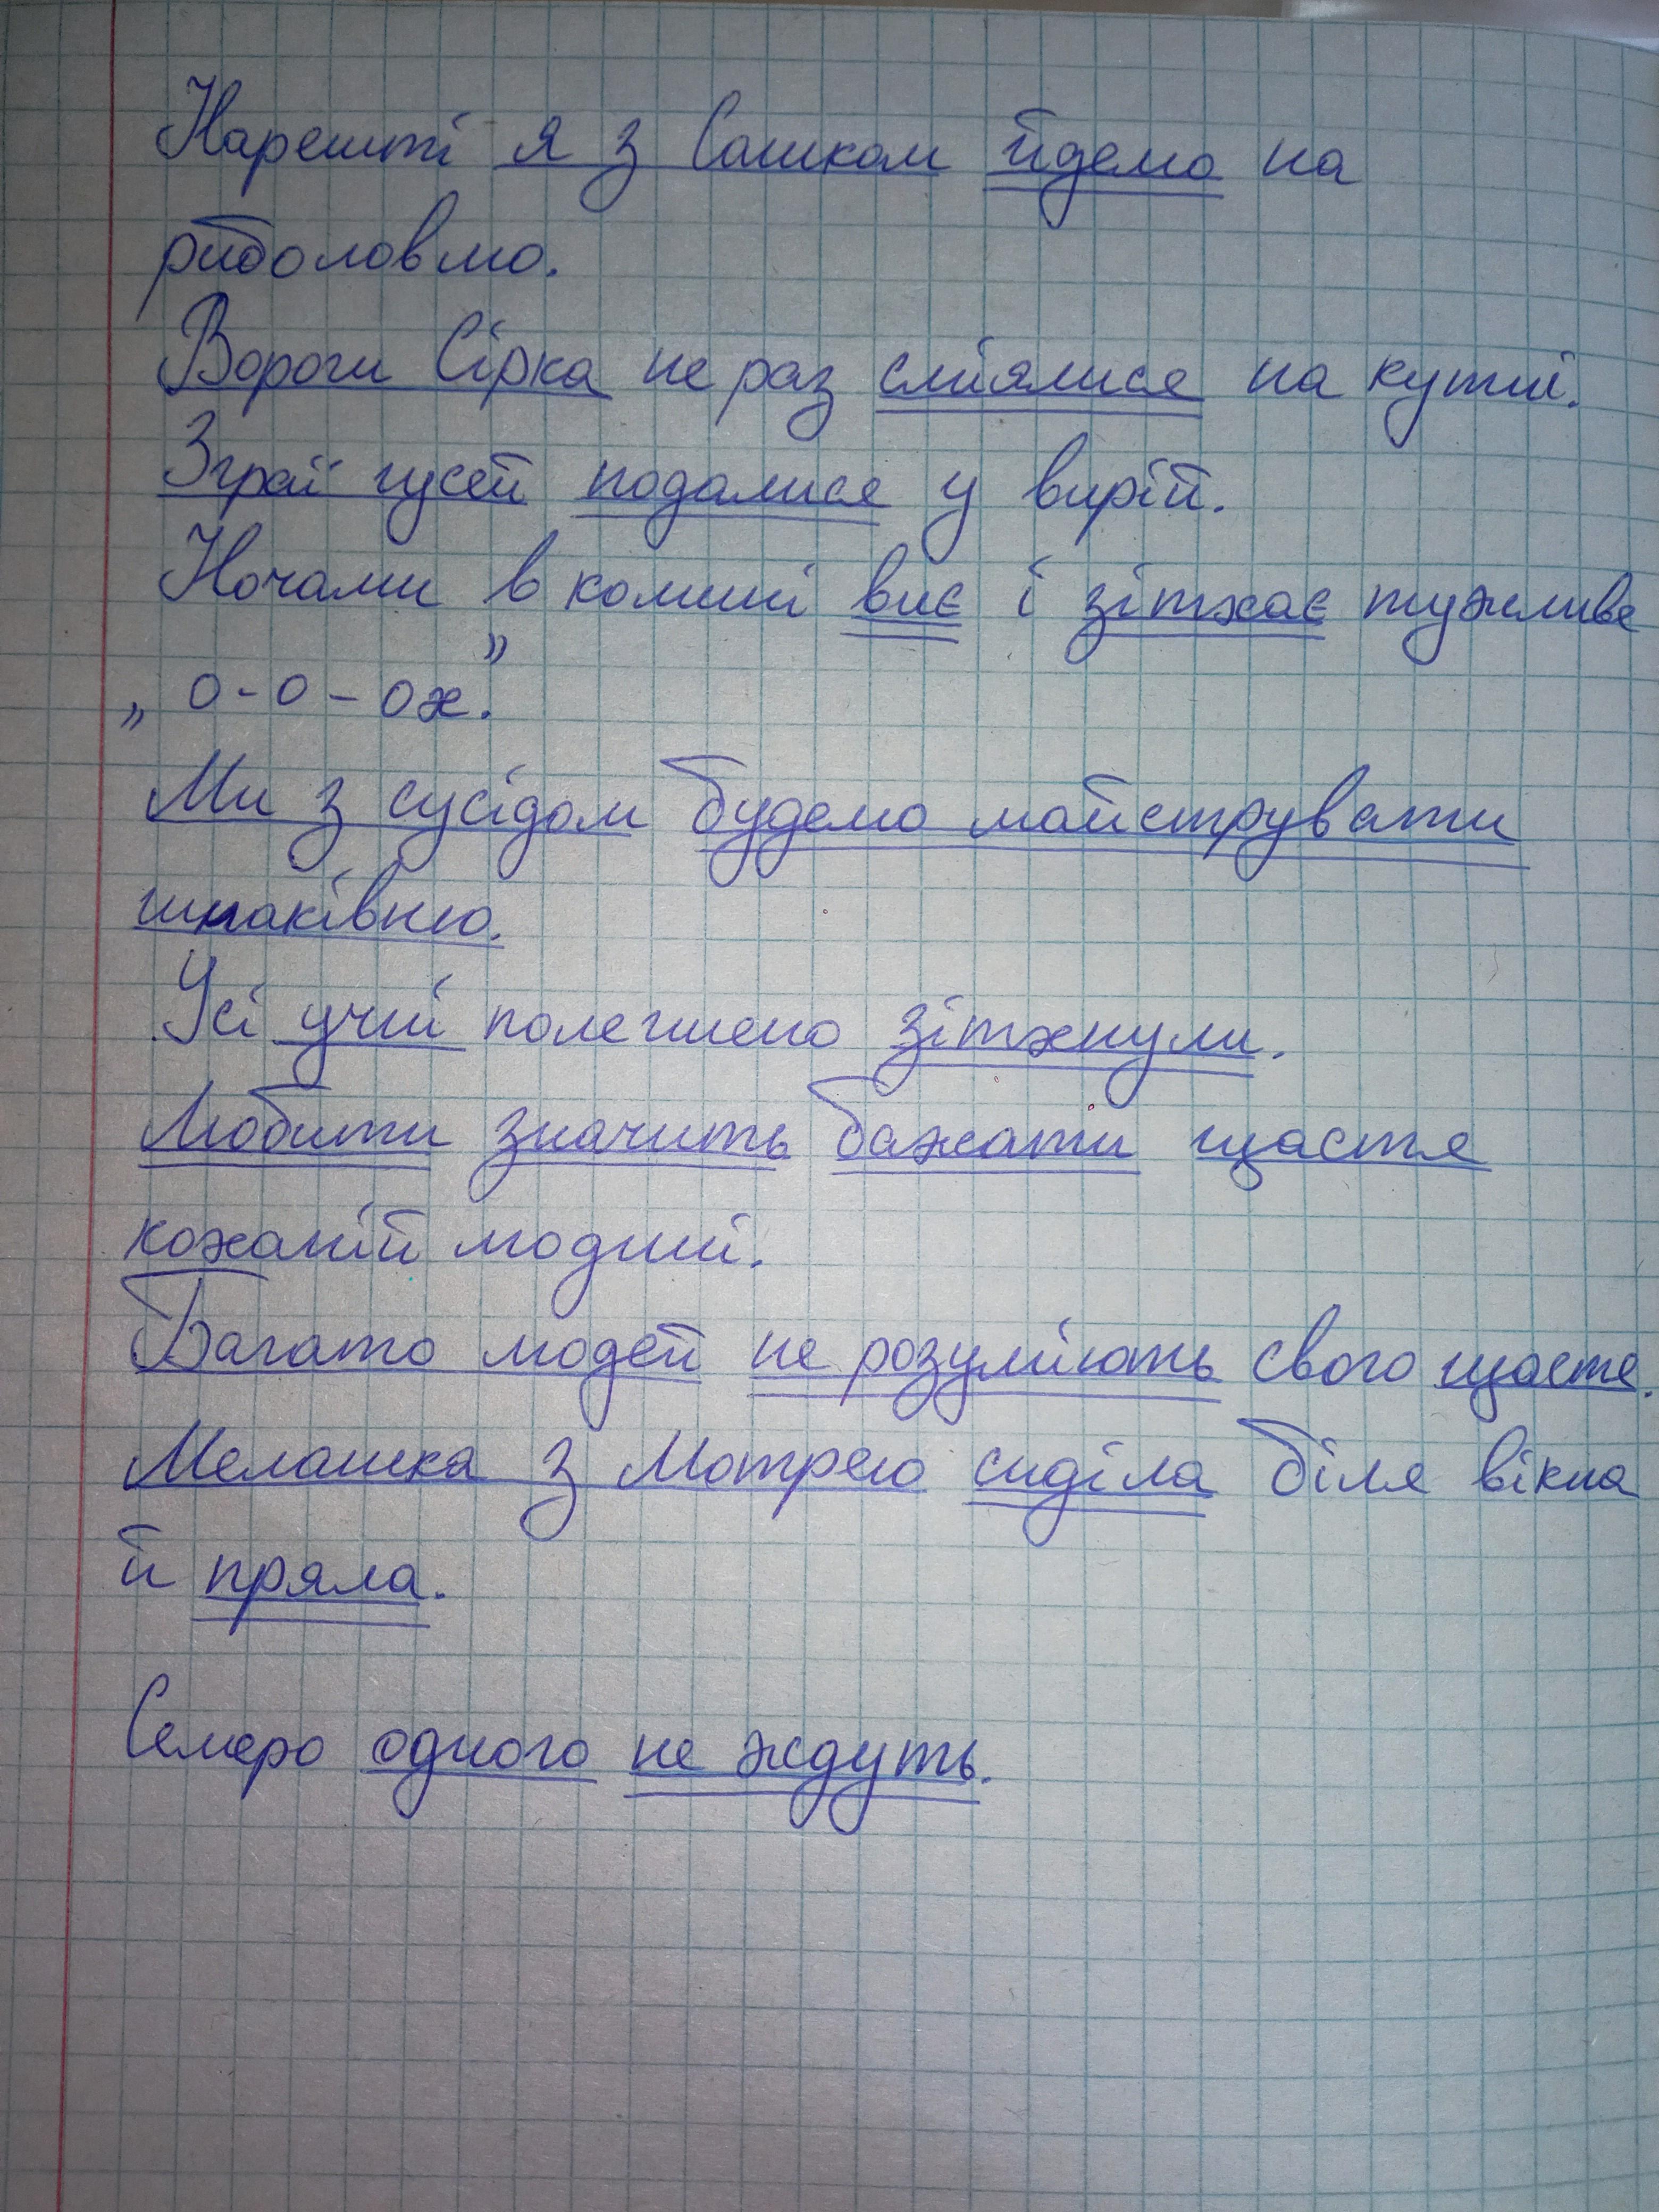 Нарешті я з Сашком йдемо на
риболовлю.
Вороги Сірка не раз сміялися на кутні.
Зграї гусей подалися у вирій.
Ночами в комині виє і зітхає тужливе
„ о-о-ох."
Ми з сусідом будемо майструвати
шпаківню.
Усі учні полегшено зітхнули.
Любити значить бажати щастя
коханій людині.
Багато людей не розуміють свого щастя.
Мелашка з Мотрею сиділа біля вікна
й пряла.
Семеро одного не ждуть.